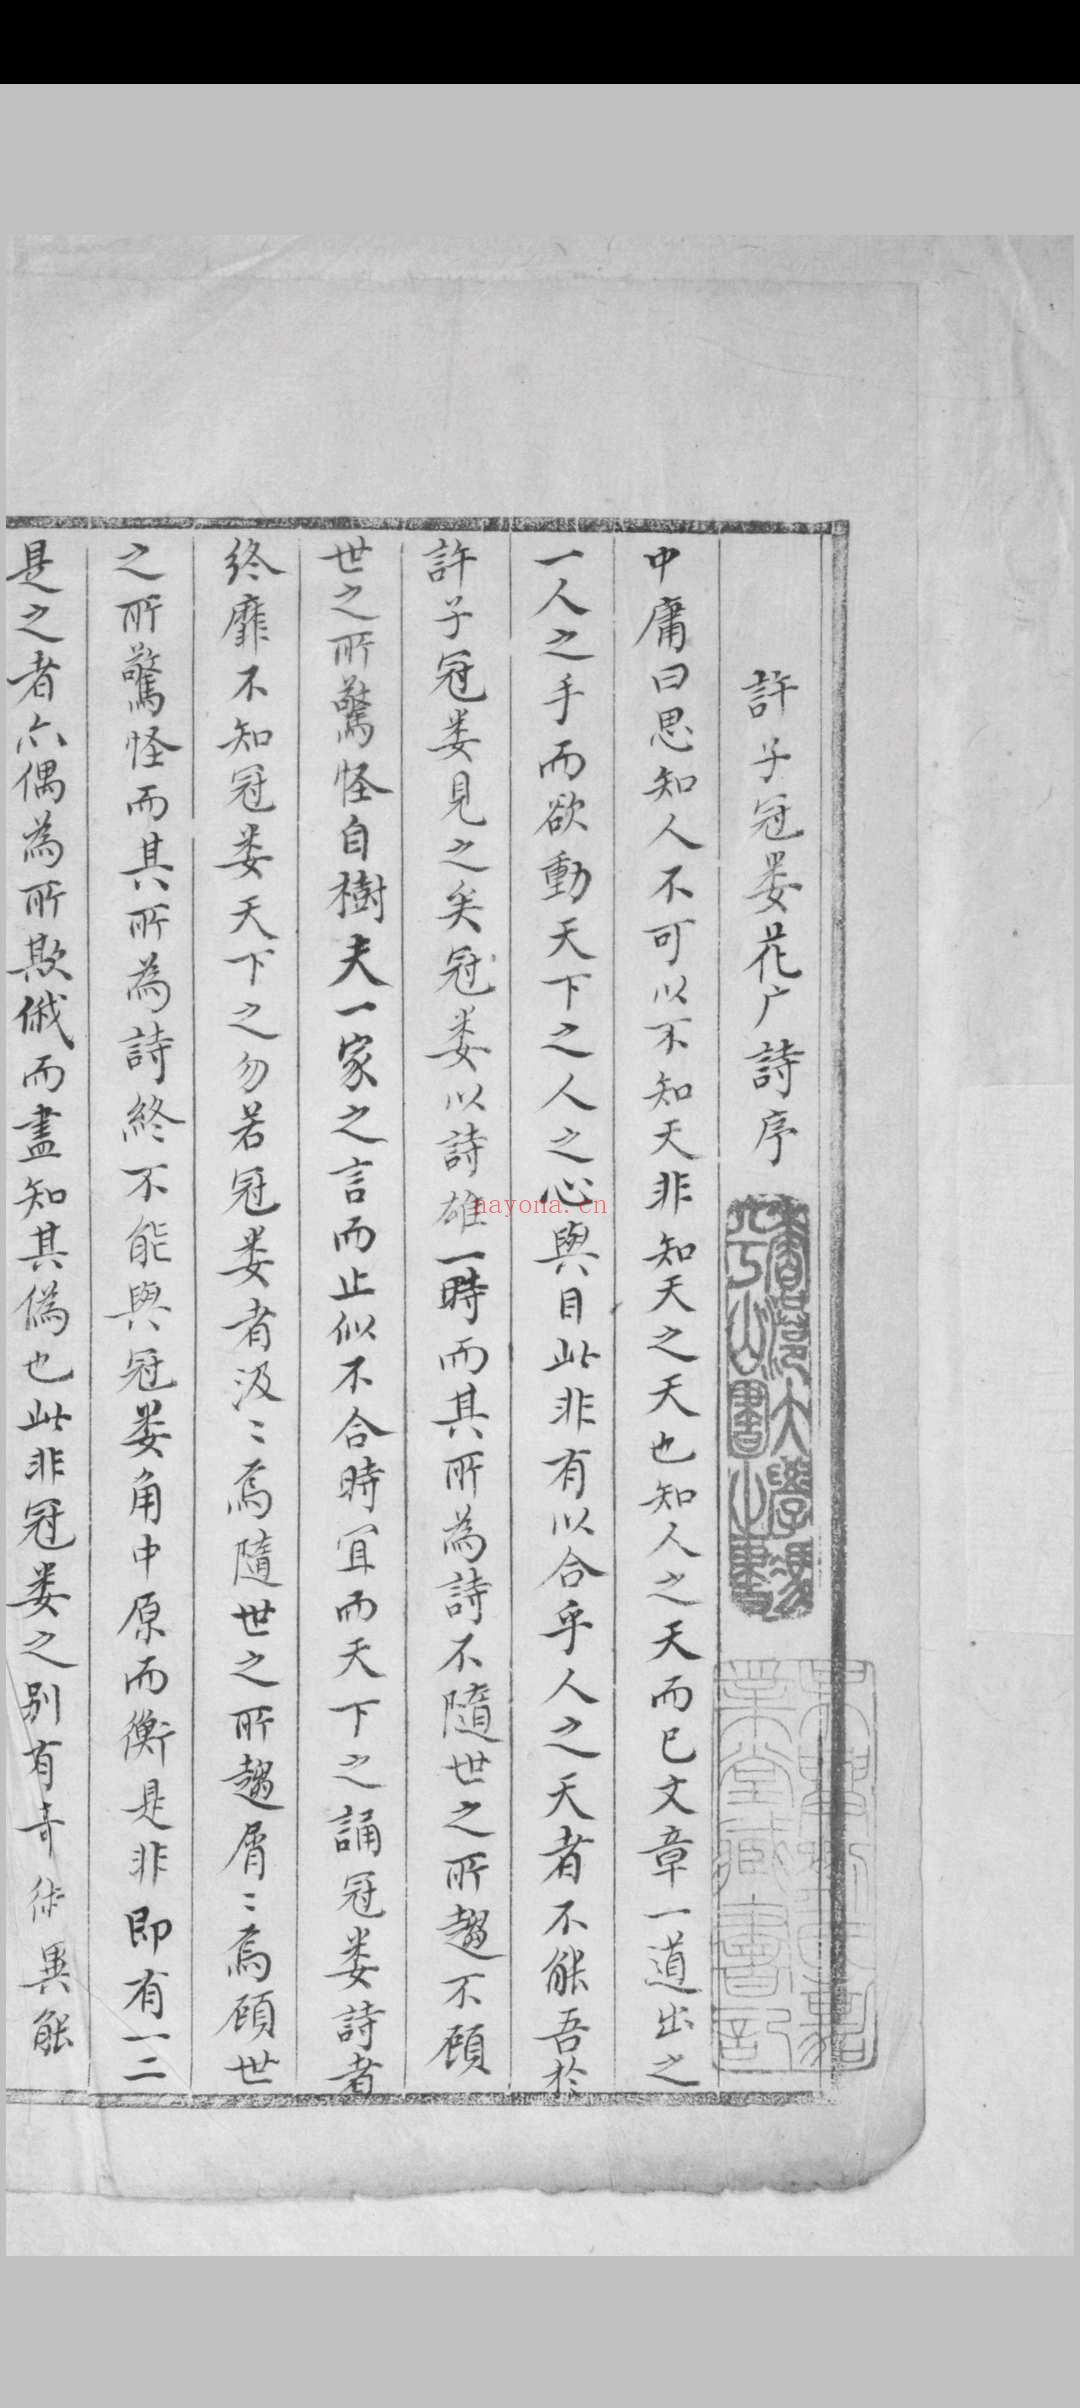 許子冠娄花广詩序
中庸曰思知人不可以不知天非知天之天也知人之天而已文章一道出之
一人之手而欲動天下之人之心與目此非有以合乎人之天者不能吾於
許子冠娄見之矣冠娄以詩雄一時而其所為詩不隨世之所趨不顧
世之所驚怪自樹夫一家之言而止似不合時冝而天下之誦冠娄詩者
终靡不知冠娄天下之勿若冠娄者汲〻焉隨世之所趨屑〻焉顧世
之所驚怪而其所為詩終不能與冠娄角中原而衡是非即有一二
是之者亦偶為所欺俄而盡知其偽也此非冠娄之别有奇術異能
nayona.cn